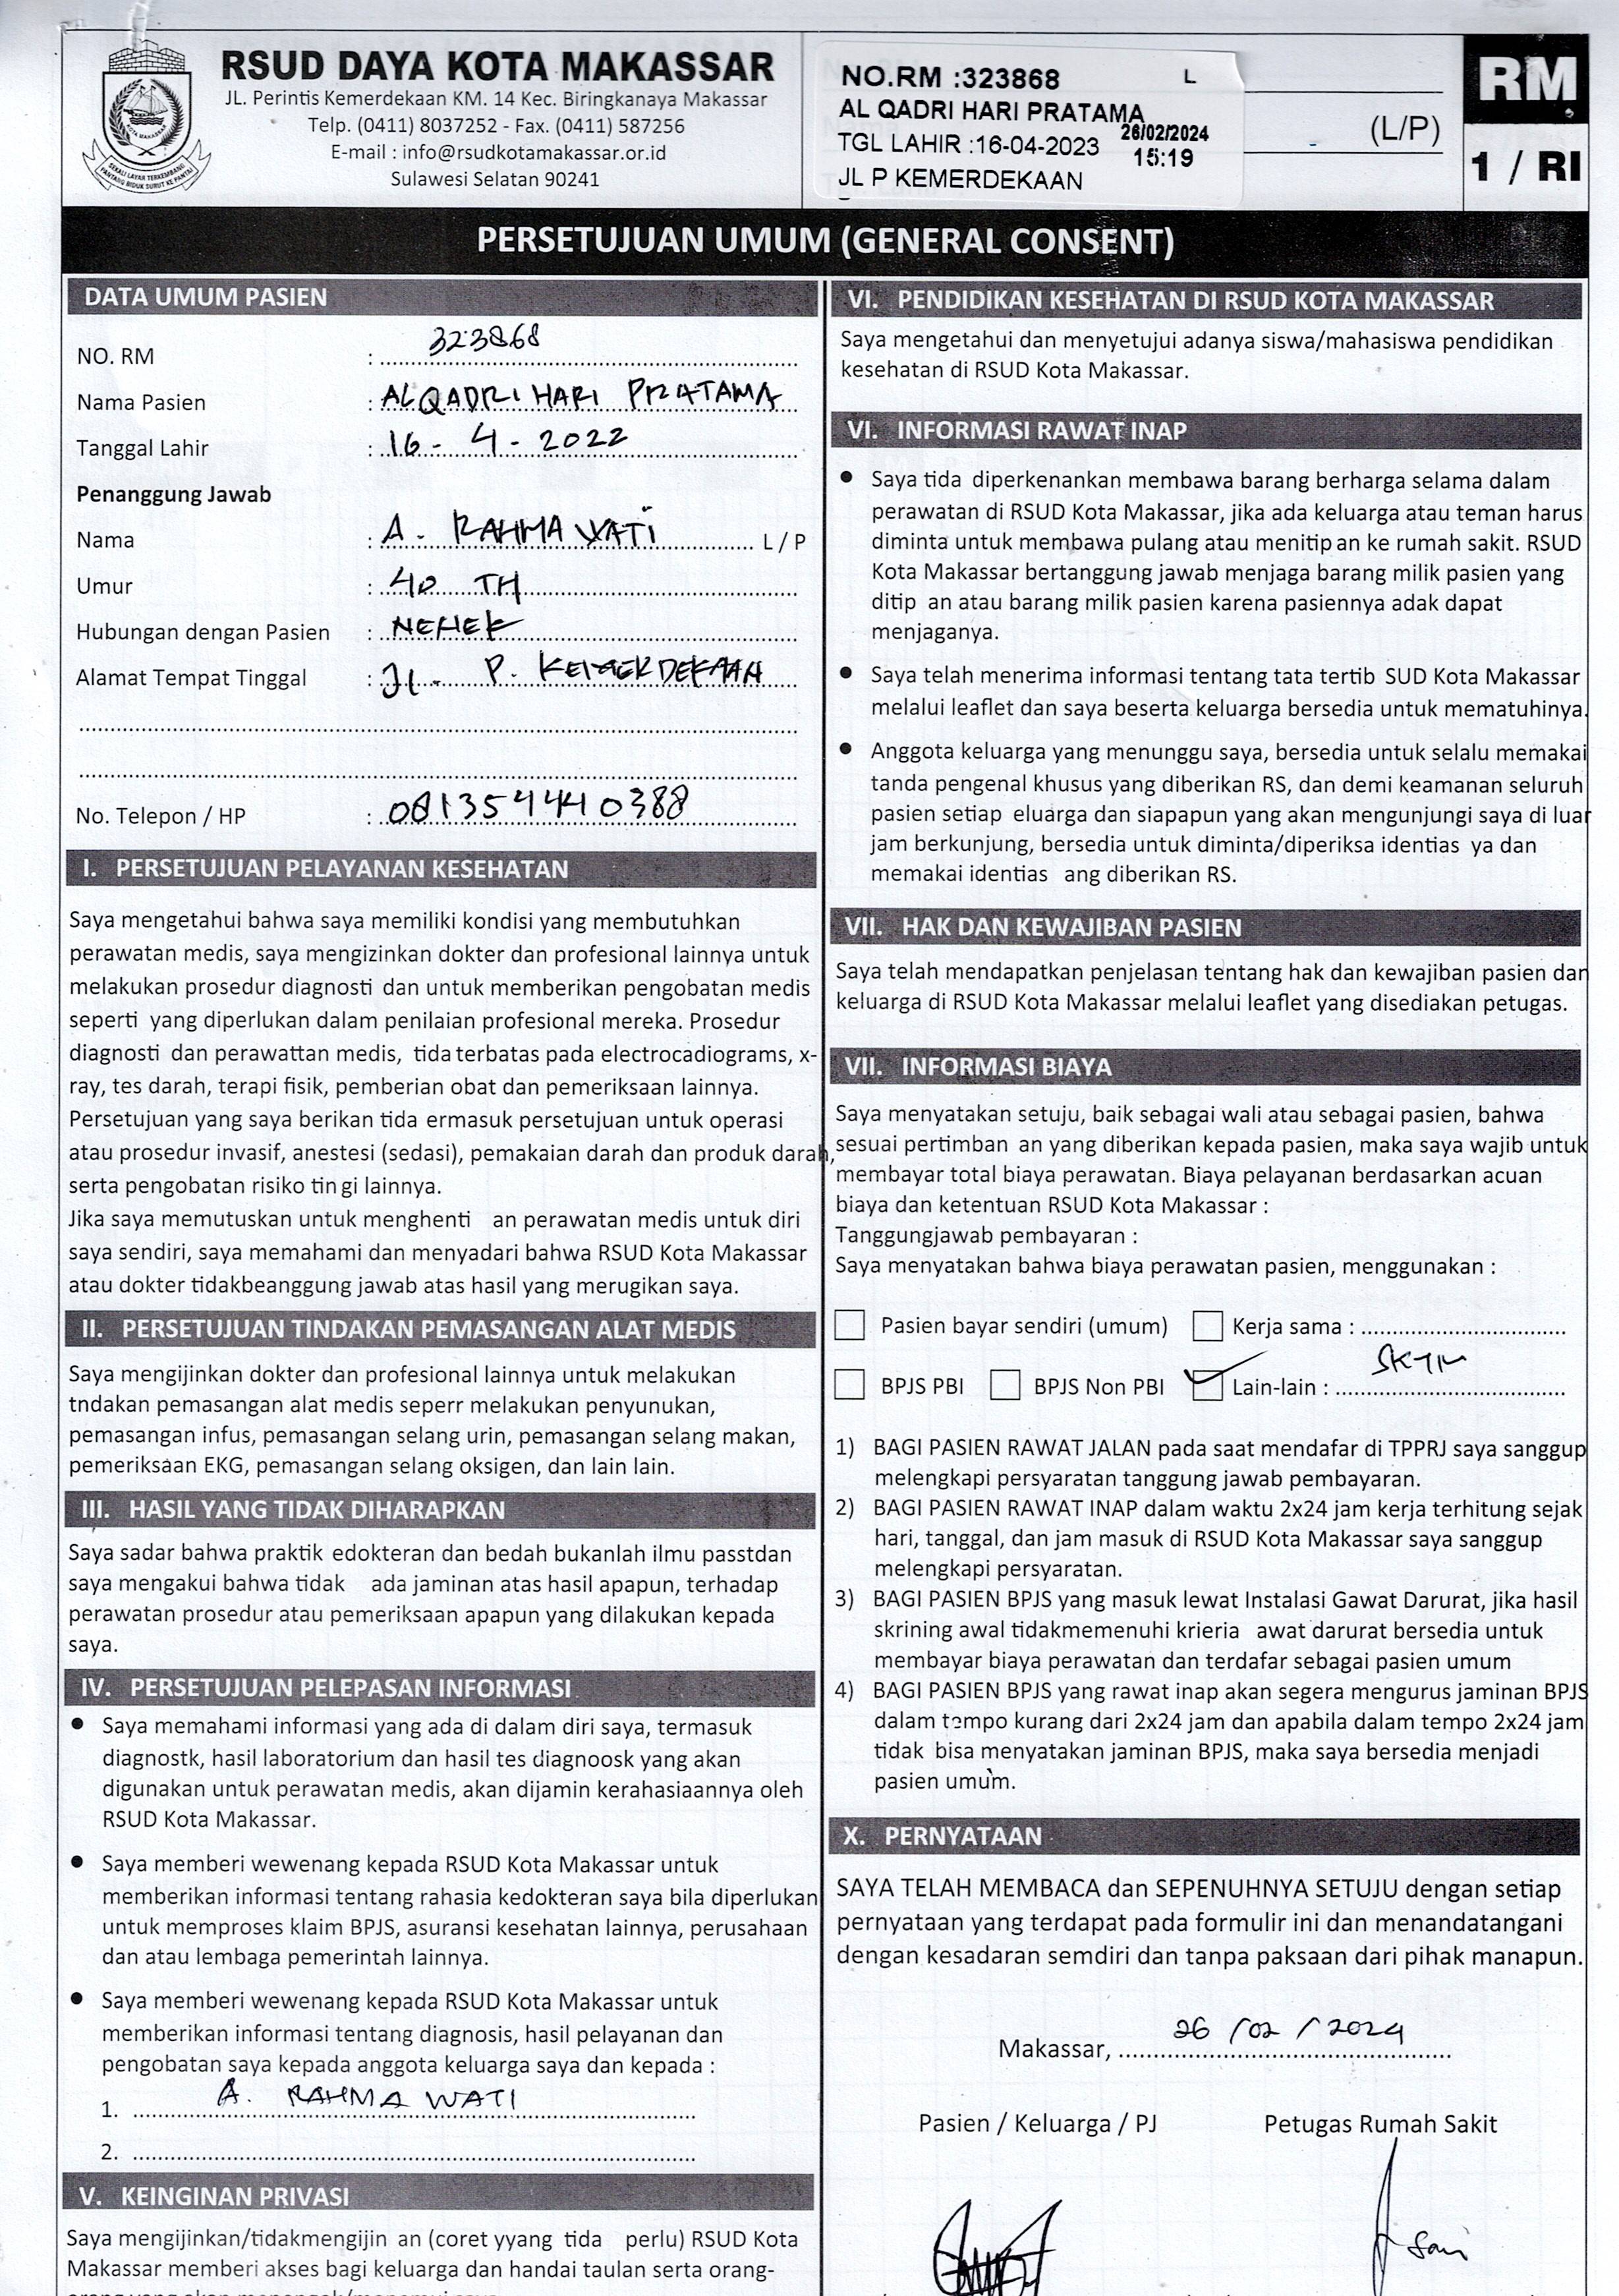 RSUD DAYA KOTA MAKASSAR
JL. Perintis Kemerdekaan KM. 14 Kec. Biringkanaya Makassar
Telp. (0411) 8037252 - Fax. (0411) 587256
E-mail : info@rsudkotamakassar.or.id
Sulawesi Selatan 90241
KOTA MAKASSAR
SEKALI LAYAR TERKEMBANG
PANTANG BIDUK SURUT KE PANTAI
NO.RM :323868 L
AL QADRI HARI PRATAMA
TGL LAHIR :16-04-2023
26/02/2024
15:19
JL P KEMERDEKAAN
(L/P)
RM
1 / RI
PERSETUJUAN UMUM (GENERAL CONSENT)
DATA UMUM PASIEN
NO. RM : 323868
Nama Pasien : AL QADRI HARI PRATAMA
Tanggal Lahir : 16 - 4 - 2022
Penanggung Jawab
Nama : A. RAHMAWATI L / P
Umur : 40 TH
Hubungan dengan Pasien : NENEK
Alamat Tempat Tinggal : Jl. P. KEMERDEKAAN
No. Telepon / HP : 081354440388
I. PERSETUJUAN PELAYANAN KESEHATAN
Saya mengetahui bahwa saya memiliki kondisi yang membutuhkan
perawatan medis, saya mengizinkan dokter dan profesional lainnya untuk
melakukan prosedur diagnosti dan untuk memberikan pengobatan medis
seperti yang diperlukan dalam penilaian profesional mereka. Prosedur
diagnosti dan perawattan medis, tida terbatas pada electrocadiograms, x-
ray, tes darah, terapi fisik, pemberian obat dan pemeriksaan lainnya.
Persetujuan yang saya berikan tida ermasuk persetujuan untuk operasi
atau prosedur invasif, anestesi (sedasi), pemakaian darah dan produk darah,
serta pengobatan risiko tin gi lainnya.
Jika saya memutuskan untuk menghenti an perawatan medis untuk diri
saya sendiri, saya memahami dan menyadari bahwa RSUD Kota Makassar
atau dokter tidakbeanggung jawab atas hasil yang merugikan saya.
II. PERSETUJUAN TINDAKAN PEMASANGAN ALAT MEDIS
Saya mengijinkan dokter dan profesional lainnya untuk melakukan
tndakan pemasangan alat medis seperr melakukan penyunukan,
pemasangan infus, pemasangan selang urin, pemasangan selang makan,
pemeriksaan EKG, pemasangan selang oksigen, dan lain lain.
III. HASIL YANG TIDAK DIHARAPKAN
Saya sadar bahwa praktik edokteran dan bedah bukanlah ilmu passtdan
saya mengakui bahwa tidak ada jaminan atas hasil apapun, terhadap
perawatan prosedur atau pemeriksaan apapun yang dilakukan kepada
saya.
IV. PERSETUJUAN PELEPASAN INFORMASI
● Saya memahami informasi yang ada di dalam diri saya, termasuk
diagnostk, hasil laboratorium dan hasil tes diagnoosk yang akan
digunakan untuk perawatan medis, akan dijamin kerahasiaannya oleh
RSUD Kota Makassar.
● Saya memberi wewenang kepada RSUD Kota Makassar untuk
memberikan informasi tentang rahasia kedokteran saya bila diperlukan
untuk memproses klaim BPJS, asuransi kesehatan lainnya, perusahaan
dan atau lembaga pemerintah lainnya.
● Saya memberi wewenang kepada RSUD Kota Makassar untuk
memberikan informasi tentang diagnosis, hasil pelayanan dan
pengobatan saya kepada anggota keluarga saya dan kepada :
1. A. RAHMAWATI
2.
V. KEINGINAN PRIVASI
Saya mengijinkan/tidakmengijin an (coret yyang tida perlu) RSUD Kota
Makassar memberi akses bagi keluarga dan handai taulan serta orang-
VI. PENDIDIKAN KESEHATAN DI RSUD KOTA MAKASSAR
Saya mengetahui dan menyetujui adanya siswa/mahasiswa pendidikan
kesehatan di RSUD Kota Makassar.
VI. INFORMASI RAWAT INAP
● Saya tida diperkenankan membawa barang berharga selama dalam
perawatan di RSUD Kota Makassar, jika ada keluarga atau teman harus
diminta untuk membawa pulang atau menitip an ke rumah sakit. RSUD
Kota Makassar bertanggung jawab menjaga barang milik pasien yang
ditip an atau barang milik pasien karena pasiennya adak dapat
menjaganya.
● Saya telah menerima informasi tentang tata tertib SUD Kota Makassar
melalui leaflet dan saya beserta keluarga bersedia untuk mematuhinya.
● Anggota keluarga yang menunggu saya, bersedia untuk selalu memakai
tanda pengenal khusus yang diberikan RS, dan demi keamanan seluruh
pasien setiap eluarga dan siapapun yang akan mengunjungi saya di luar
jam berkunjung, bersedia untuk diminta/diperiksa identias ya dan
memakai identias ang diberikan RS.
VII. HAK DAN KEWAJIBAN PASIEN
Saya telah mendapatkan penjelasan tentang hak dan kewajiban pasien dan
keluarga di RSUD Kota Makassar melalui leaflet yang disediakan petugas.
VII. INFORMASI BIAYA
Saya menyatakan setuju, baik sebagai wali atau sebagai pasien, bahwa
sesuai pertimban an yang diberikan kepada pasien, maka saya wajib untuk
membayar total biaya perawatan. Biaya pelayanan berdasarkan acuan
biaya dan ketentuan RSUD Kota Makassar :
Tanggungjawab pembayaran :
Saya menyatakan bahwa biaya perawatan pasien, menggunakan :
Pasien bayar sendiri (umum) Kerja sama :
BPJS PBI BPJS Non PBI Lain-lain : SKTM
1) BAGI PASIEN RAWAT JALAN pada saat mendafar di TPPRJ saya sanggup
melengkapi persyaratan tanggung jawab pembayaran.
2) BAGI PASIEN RAWAT INAP dalam waktu 2x24 jam kerja terhitung sejak
hari, tanggal, dan jam masuk di RSUD Kota Makassar saya sanggup
melengkapi persyaratan.
3) BAGI PASIEN BPJS yang masuk lewat Instalasi Gawat Darurat, jika hasil
skrining awal tidakmemenuhi krieria awat darurat bersedia untuk
membayar biaya perawatan dan terdafar sebagai pasien umum
4) BAGI PASIEN BPJS yang rawat inap akan segera mengurus jaminan BPJS
dalam tempo kurang dari 2x24 jam dan apabila dalam tempo 2x24 jam
tidak bisa menyatakan jaminan BPJS, maka saya bersedia menjadi
pasien umum.
X. PERNYATAAN
SAYA TELAH MEMBACA dan SEPENUHNYA SETUJU dengan setiap
pernyataan yang terdapat pada formulir ini dan menandatangani
dengan kesadaran semdiri dan tanpa paksaan dari pihak manapun.
Makassar, 26 / 02 / 2024
Pasien / Keluarga / PJ Petugas Rumah Sakit